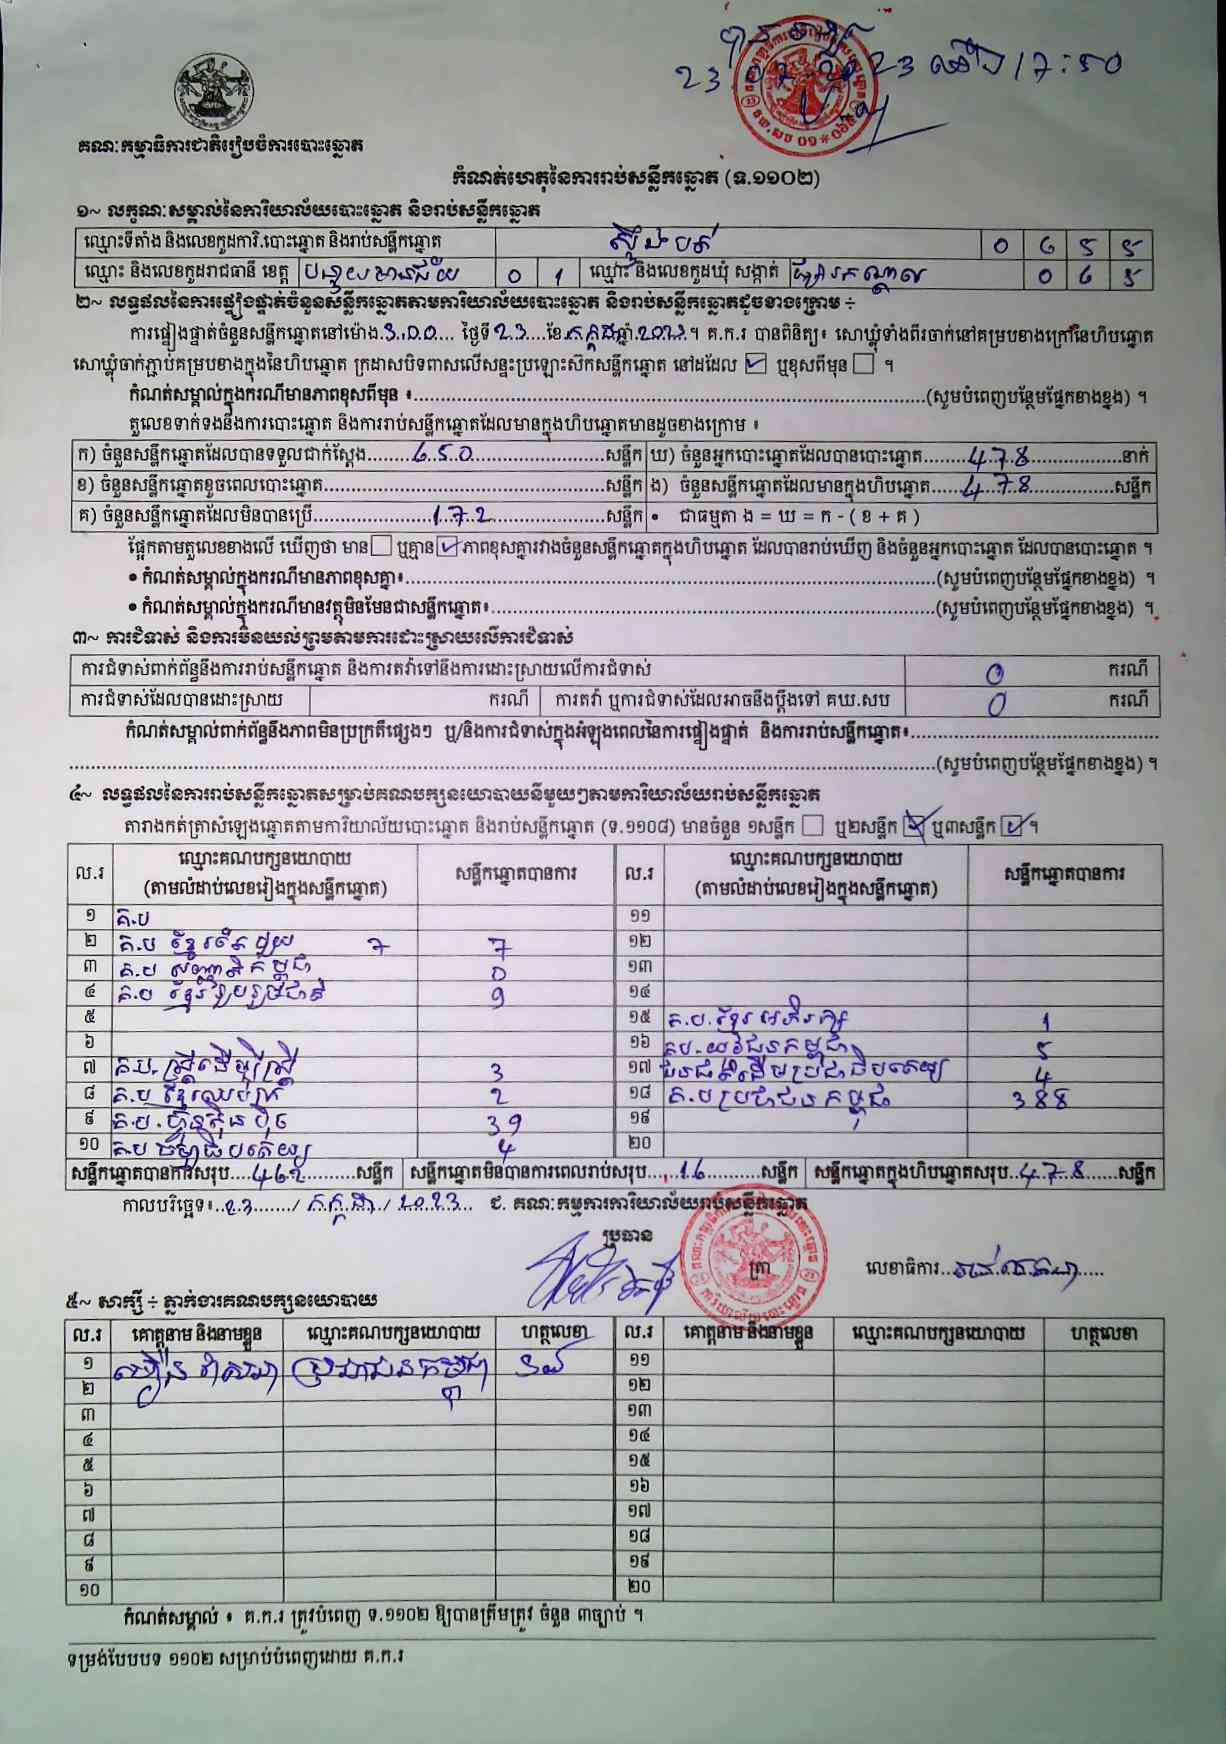 23 07 2023 ម៉ោង 17:50
គណៈកម្មាធិការជាតិរៀបចំការបោះឆ្នោត
កំណត់ហេតុនៃការរាប់សន្លឹកឆ្នោត (ទ.១១០២)
១~ លក្ខណៈសម្គាល់នៃការិយាល័យបោះឆ្នោត និងរាប់សន្លឹកឆ្នោត
ឈ្មោះទីតាំង និងលេខកូដការិ.បោះឆ្នោត និងរាប់សន្លឹកឆ្នោត ស្ទឹងបត់ 0 6 5 5
ឈ្មោះ និងលេខកូដរាជធានី ខេត្ត បន្ទាយមានជ័យ 0 1 ឈ្មោះ និងលេខកូដឃុំ សង្កាត់ ផ្សារកណ្តាល 0 6 5
២~ លទ្ធផលនៃការផ្ទៀងផ្ទាត់ចំនួនសន្លឹកឆ្នោតតាមការិយាល័យបោះឆ្នោត និងរាប់សន្លឹកឆ្នោតដូចខាងក្រោម ÷
ការផ្ទៀងផ្ទាត់ចំនួនសន្លឹកឆ្នោតនៅម៉ោង 3:00 ថ្ងៃទី 23 ខែ កក្កដា ឆ្នាំ 2023 ។ គ.ក.រ បានពិនិត្យ៖ សោឃ្លុំទាំងពីរចាក់នៅគម្របខាងក្រៅនៃហិបឆ្នោត
សោឃ្លុំចាក់ភ្ជាប់គម្របខាងក្នុងនៃហិបឆ្នោត ក្រដាសបិទពាសលើសន្ទះប្រឡោះស៊កសន្លឹកឆ្នោត នៅដដែល ☑ ឬខុសពីមុន ☐ ។
កំណត់សម្គាល់ក្នុងករណីមានភាពខុសពីមុន ៖ (សូមបំពេញបន្ថែមផ្នែកខាងខ្នង) ។
តួលេខទាក់ទងនឹងការបោះឆ្នោត និងការរាប់សន្លឹកឆ្នោតដែលមានក្នុងហិបឆ្នោតមានដូចខាងក្រោម ៖
ក) ចំនួនសន្លឹកឆ្នោតដែលបានទទួលជាក់ស្តែង 650 សន្លឹក ឃ) ចំនួនអ្នកបោះឆ្នោតដែលបានបោះឆ្នោត 478 នាក់
ខ) ចំនួនសន្លឹកឆ្នោតខូចពេលបោះឆ្នោត សន្លឹក ង) ចំនួនសន្លឹកឆ្នោតដែលមានក្នុងហិបឆ្នោត 478 សន្លឹក
គ) ចំនួនសន្លឹកឆ្នោតដែលមិនបានប្រើ 172 សន្លឹក • ជាធម្មតា ង = ឃ = ក - ( ខ + គ )
ផ្អែកតាមតួលេខខាងលើ ឃើញថា មាន ☐ ឬគ្មាន ☑ ភាពខុសគ្នារវាងចំនួនសន្លឹកឆ្នោតក្នុងហិបឆ្នោត ដែលបានរាប់ឃើញ និងចំនួនអ្នកបោះឆ្នោត ដែលបានបោះឆ្នោត ។
• កំណត់សម្គាល់ក្នុងករណីមានភាពខុសគ្នា៖ (សូមបំពេញបន្ថែមផ្នែកខាងខ្នង) ។
• កំណត់សម្គាល់ក្នុងករណីមានវត្ថុមិនមែនជាសន្លឹកឆ្នោត៖ (សូមបំពេញបន្ថែមផ្នែកខាងខ្នង) ។
៣~ ការជំទាស់ និងការមិនយល់ព្រមតាមការដោះស្រាយលើការជំទាស់
ការជំទាស់ពាក់ព័ន្ធនឹងការរាប់សន្លឹកឆ្នោត និងការតវ៉ាទៅនឹងការដោះស្រាយលើការជំទាស់ 0 ករណី
ការជំទាស់ដែលបានដោះស្រាយ ករណី ការតវ៉ា ឬការជំទាស់ដែលអាចនឹងប្តឹងទៅ គឃ.សប 0 ករណី
កំណត់សម្គាល់ពាក់ព័ន្ធនឹងភាពមិនប្រក្រតីផ្សេងៗ ឬ/និងការជំទាស់ក្នុងអំឡុងពេលនៃការផ្ទៀងផ្ទាត់ និងការរាប់សន្លឹកឆ្នោត៖
(សូមបំពេញបន្ថែមផ្នែកខាងខ្នង) ។
៤~ លទ្ធផលនៃការរាប់សន្លឹកឆ្នោតសម្រាប់គណបក្សនយោបាយនីមួយៗតាមការិយាល័យរាប់សន្លឹកឆ្នោត
តារាងកត់ត្រាសំឡេងឆ្នោតតាមការិយាល័យបោះឆ្នោត និងរាប់សន្លឹកឆ្នោត (ទ.១១០៨) មានចំនួន ១សន្លឹក ☐ ឬ២សន្លឹក ☑ ឬ៣សន្លឹក ☑ ។
ល.រ ឈ្មោះគណបក្សនយោបាយ (តាមលំដាប់លេខរៀងក្នុងសន្លឹកឆ្នោត) សន្លឹកឆ្នោតបានការ ល.រ ឈ្មោះគណបក្សនយោបាយ (តាមលំដាប់លេខរៀងក្នុងសន្លឹកឆ្នោត) សន្លឹកឆ្នោតបានការ
១ គ.ប ១១
២ គ.ប ខ្មែរ 7 7 ១២
៣ គ.ប កម្ពុជា 0 ១៣
៤ គ.ប ខ្មែររួបរួមជាតិ 9 ១៤
៥ ១៥ គ.ប.ខ្មែរអភិរក្ស 1
៦ ១៦ គ.ប.យុវជនកម្ពុជា 5
៧ គ.ប.ស្ត្រីដើម្បីស្ត្រី 3 ១៧ ជនជាតិដើមប្រជាធិបតេយ្យ 4
៨ គ.ប ខ្មែរឈប់ក្រ 2 ១៨ គ.ប ប្រជាជនកម្ពុជា 388
៩ គ.ប.ហ៊្វុនស៊ិនប៉ិច 39 ១៩
១០ គ.ប ធម្មាធិបតេយ្យ 4 ២០
សន្លឹកឆ្នោតបានការសរុប 462 សន្លឹក សន្លឹកឆ្នោតមិនបានការពេលរាប់សរុប 16 សន្លឹក សន្លឹកឆ្នោតក្នុងហិបឆ្នោតសរុប 478 សន្លឹក
កាលបរិច្ឆេទ៖ 23 / កក្កដា / 2023 ជ. គណៈកម្មការការិយាល័យរាប់សន្លឹកឆ្នោត
ប្រធាន
ត្រា លេខាធិការ
៥~ សាក្សី ÷ ភ្នាក់ងារគណបក្សនយោបាយ
ល.រ គោត្តនាម និងនាមខ្លួន ឈ្មោះគណបក្សនយោបាយ ហត្ថលេខា ល.រ គោត្តនាម និងនាមខ្លួន ឈ្មោះគណបក្សនយោបាយ ហត្ថលេខា
១ ប្រជាជនកម្ពុជា ១១
២ ១២
៣ ១៣
៤ ១៤
៥ ១៥
៦ ១៦
៧ ១៧
៨ ១៨
៩ ១៩
១០ ២០
កំណត់សម្គាល់ ៖ គ.ក.រ ត្រូវបំពេញ ទ.១១០២ ឱ្យបានត្រឹមត្រូវ ចំនួន ៣ច្បាប់ ។
ទម្រង់បែបបទ ១១០២ សម្រាប់បំពេញដោយ គ.ក.រ